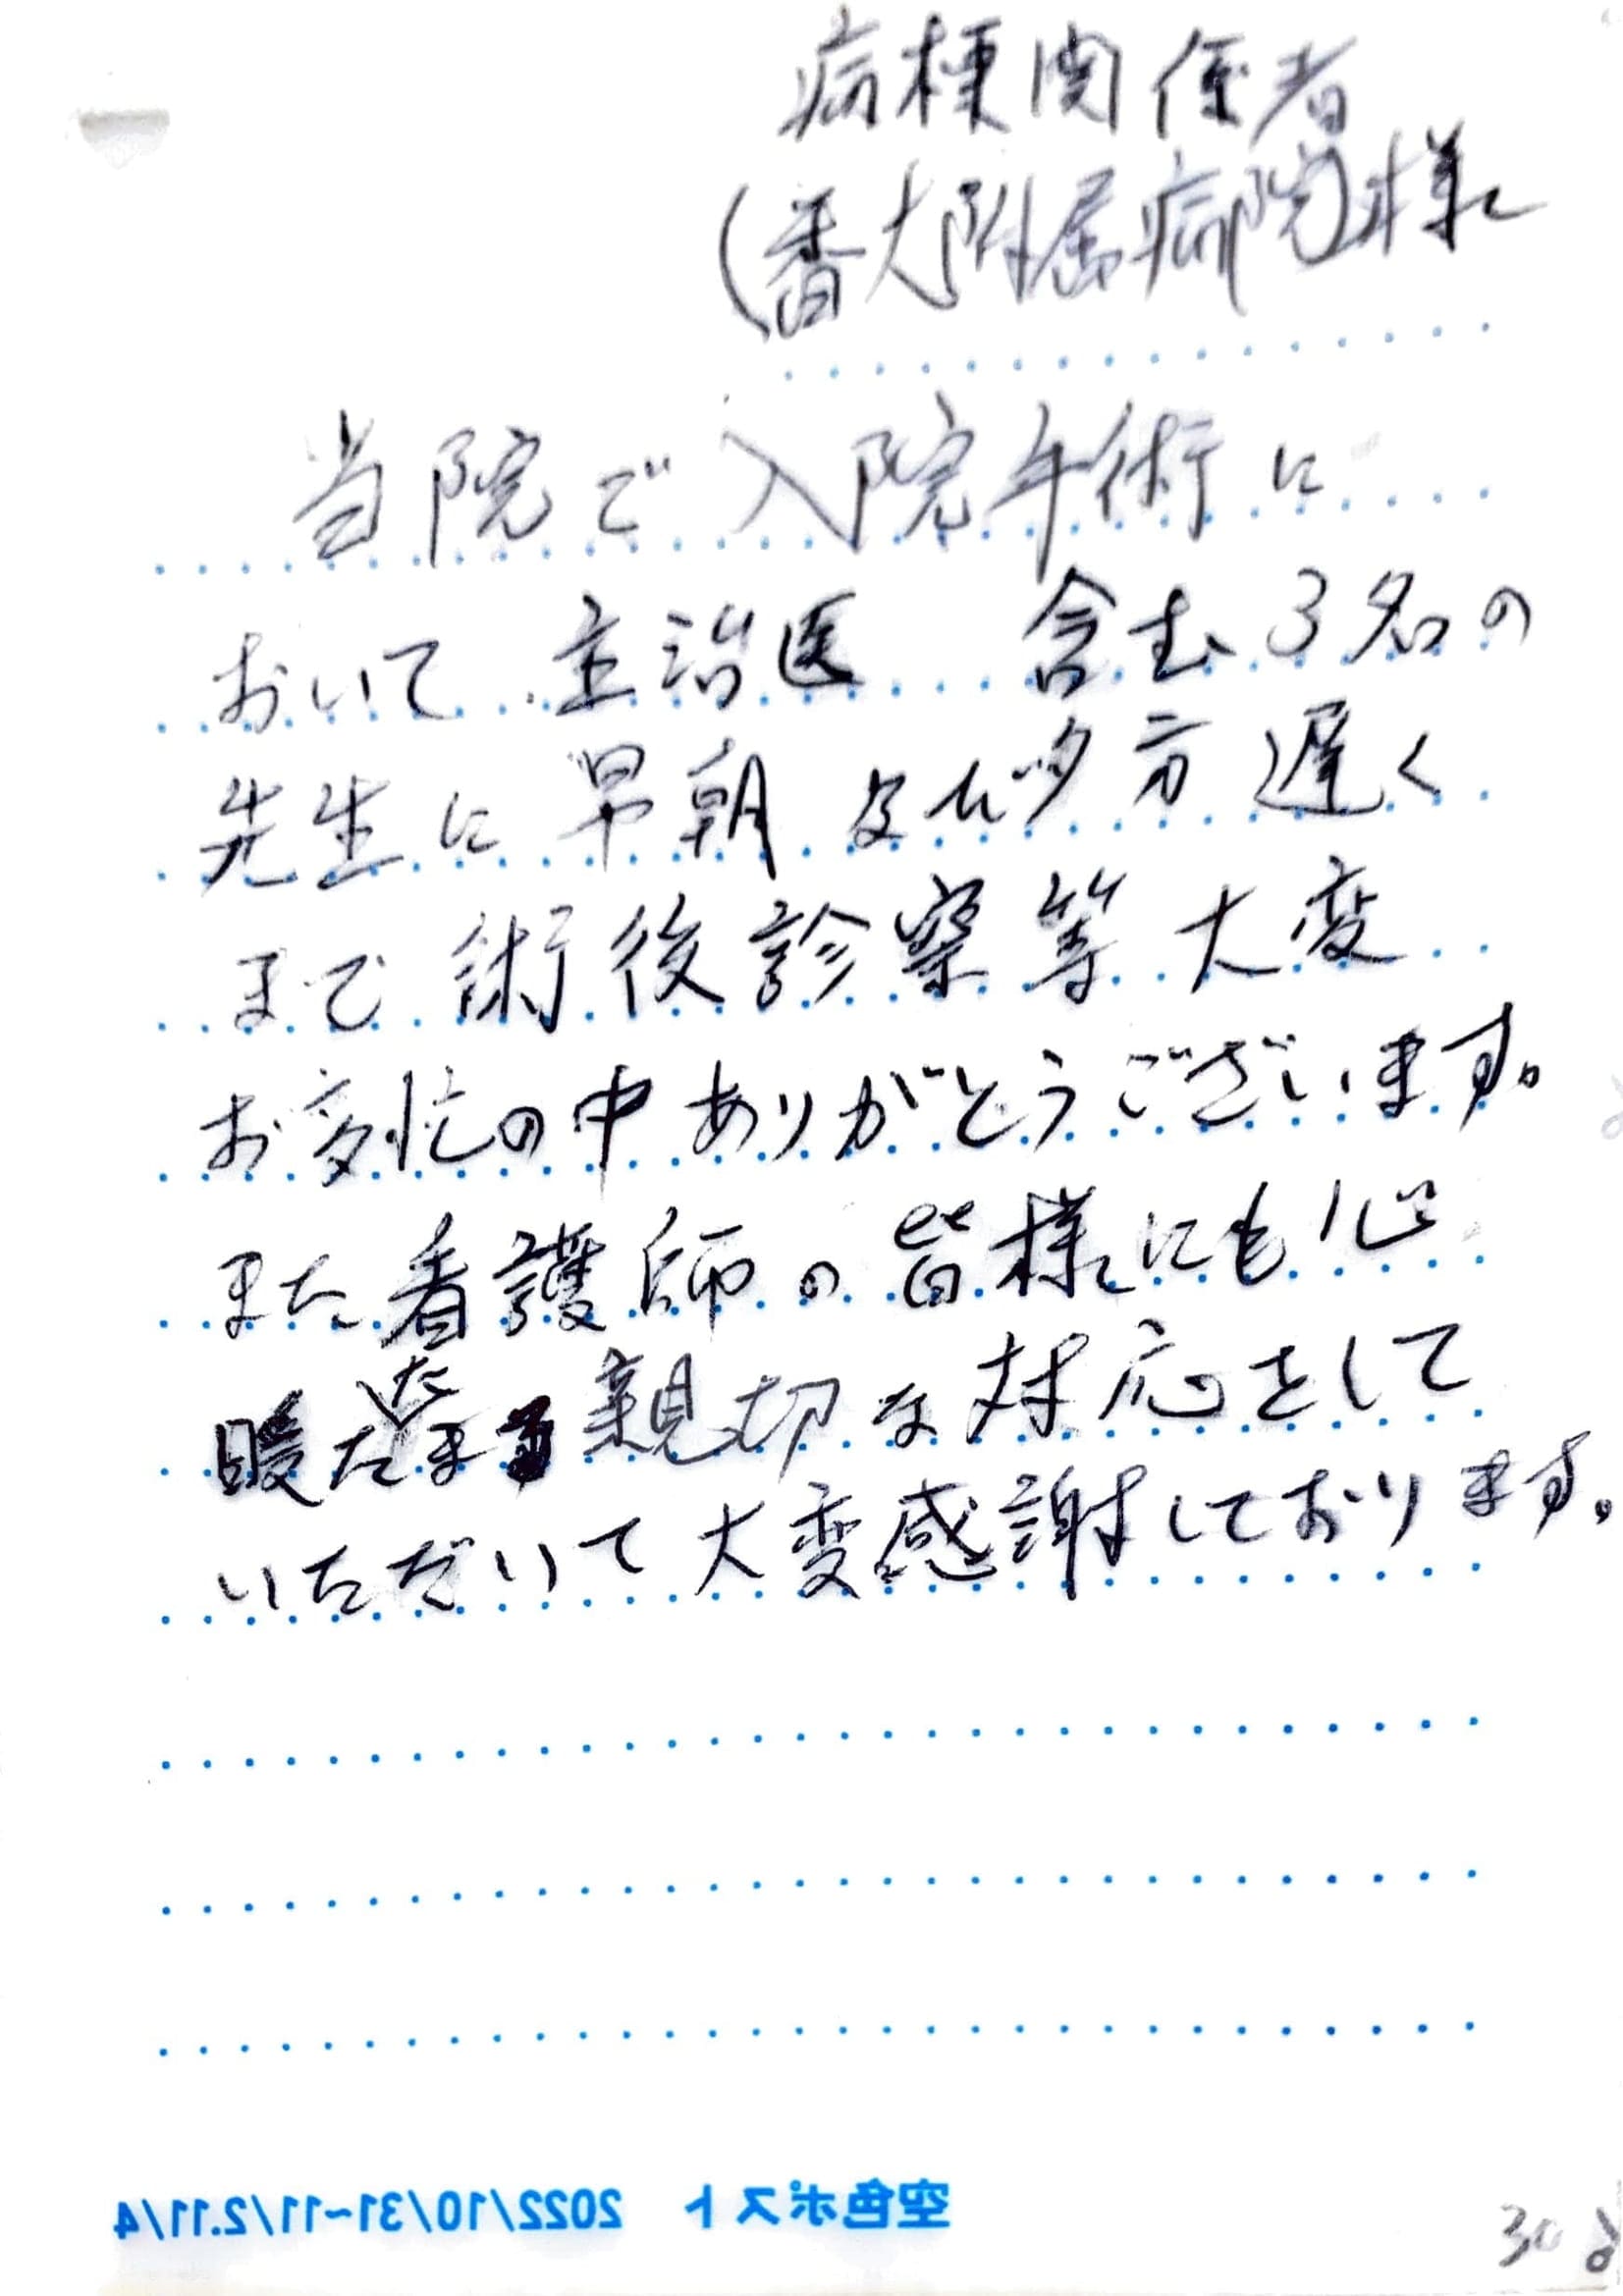 病棟関係者
(香大附属病院)様
当院で入院手術に
おいて 主治医 含む3名の
先生に早朝及び夕方遅く
まで術後診察等大変
お多忙の中ありがとうございます。
また看護師の皆様にも心
暖たまる親切な対応をして
いただいて大変感謝しております。
空色ポスト 2022/10/31~11/2.11/4
30